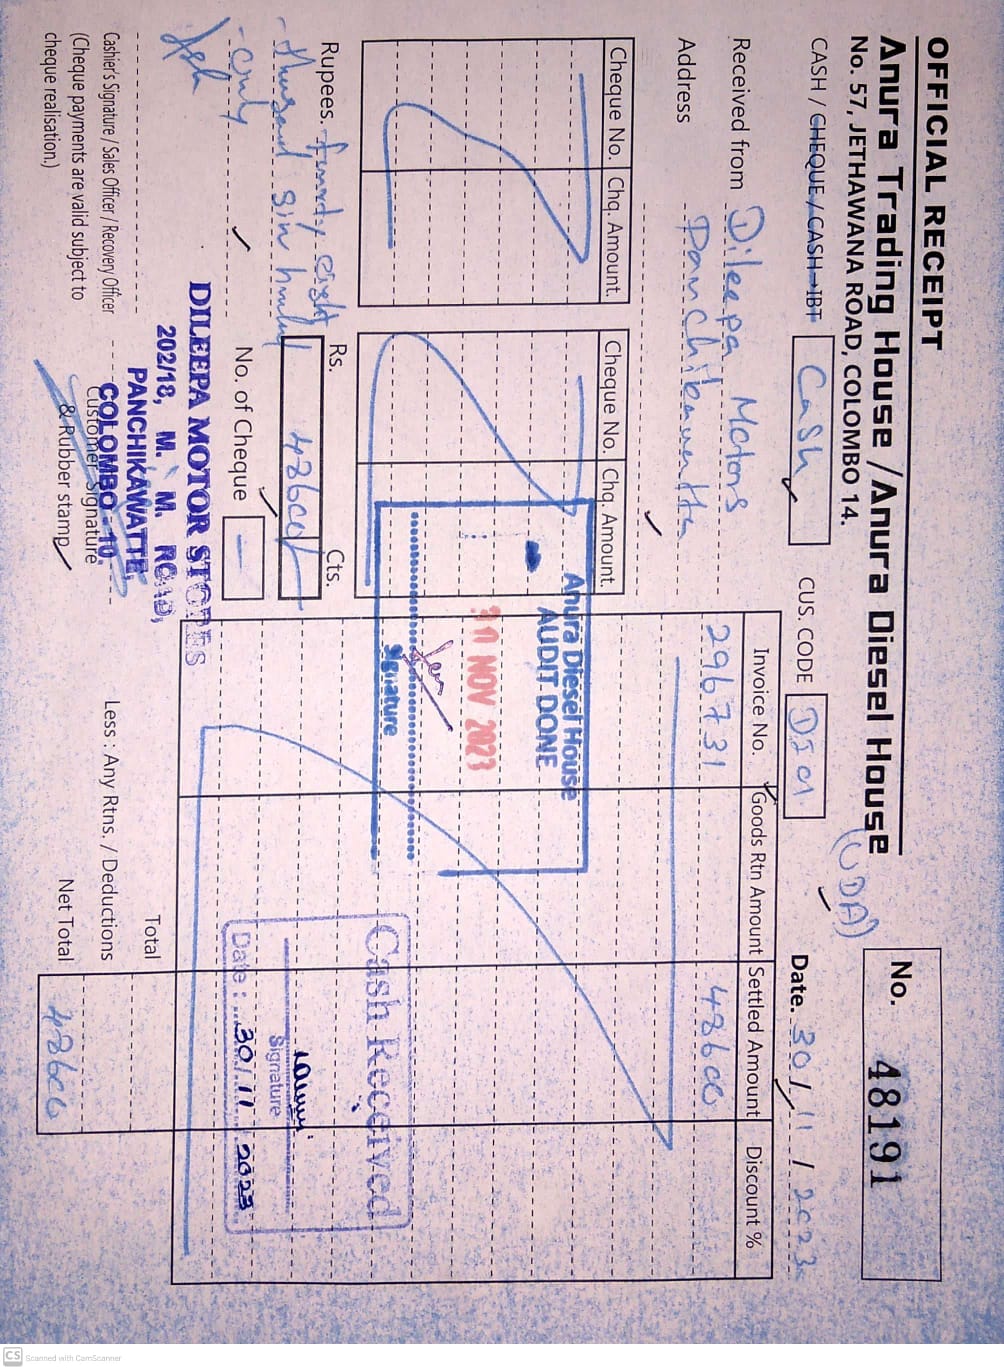 OFFICIAL RECEIPT
Anura Trading House / Anura Diesel House
No. 57, JETHAWANA ROAD, COLOMBO 14.
(UDA)
No. 48191
CASH / CHEQUE / CASH→IBT Cash CUS. CODE DI01 Date. 30/11/2023
Received from Dileepa Motors
Address Panchikawatta
Cheque No. Chq. Amount. Cheque No. Chq. Amount.
Invoice No. Goods Rtn Amount Settled Amount Discount %
296731 48600
Anura Diesel House
AUDIT DONE
30 NOV 2023
Signature
Cash Received
Signature
Date : 30/11 2023
Rupees. fourty eight
thusand six hundred
only
Rs. Cts.
48600/-
No. of Cheque –
DILEEPA MOTOR STORES
202/18, M. J. M. ROAD,
PANCHIKAWATTE,
COLOMBO - 10.
Cashier's Signature / Sales Officer / Recovery Officer
(Cheque payments are valid subject to
cheque realisation.)
Customer Signature
& Rubber stamp
Total
Less : Any Rtns. / Deductions
Net Total 48600
CS Scanned with CamScanner